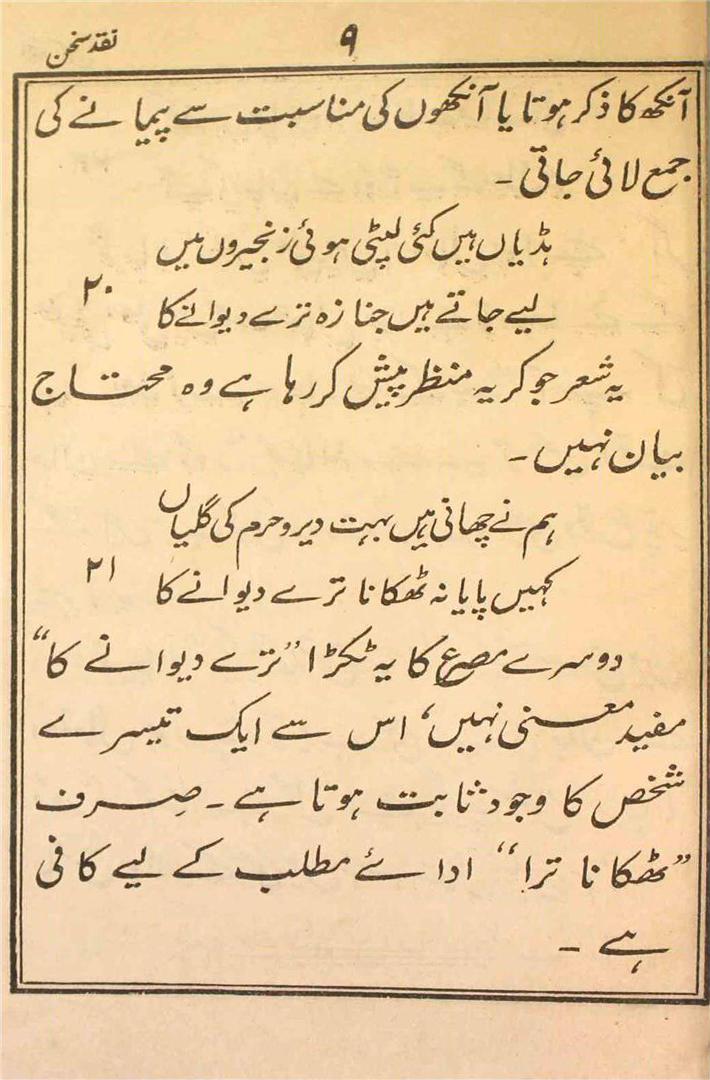 نقد سخن ۹
آنکھ کا ذکر ہوتا یا آنکھوں کی مناسبت سے پیمانے کی
جمع لائی جاتی ۔
ہڈیاں ہیں کئی لپٹی ہوئی زنجیروں میں
لیے جاتے ہیں جنازہ ترے دیوانے کا ۲۰
یہ شعر جو کریہ منظر پیش کر رہا ہے وہ محتاج
بیان نہیں ۔
ہم نے چھانی ہیں بہت دیر و حرم کی گلیاں
کہیں پایا نہ ٹھکانا ترے دیوانے کا ۲۱
دوسرے مصرع کا یہ ٹکڑا ”ترے دیوانے کا“
مفید معنی نہیں، اس سے ایک تیسرے
شخص کا وجود ثابت ہوتا ہے ۔ صرف
”ٹھکانا ترا“ ادائے مطلب کے لیے کافی
ہے ۔